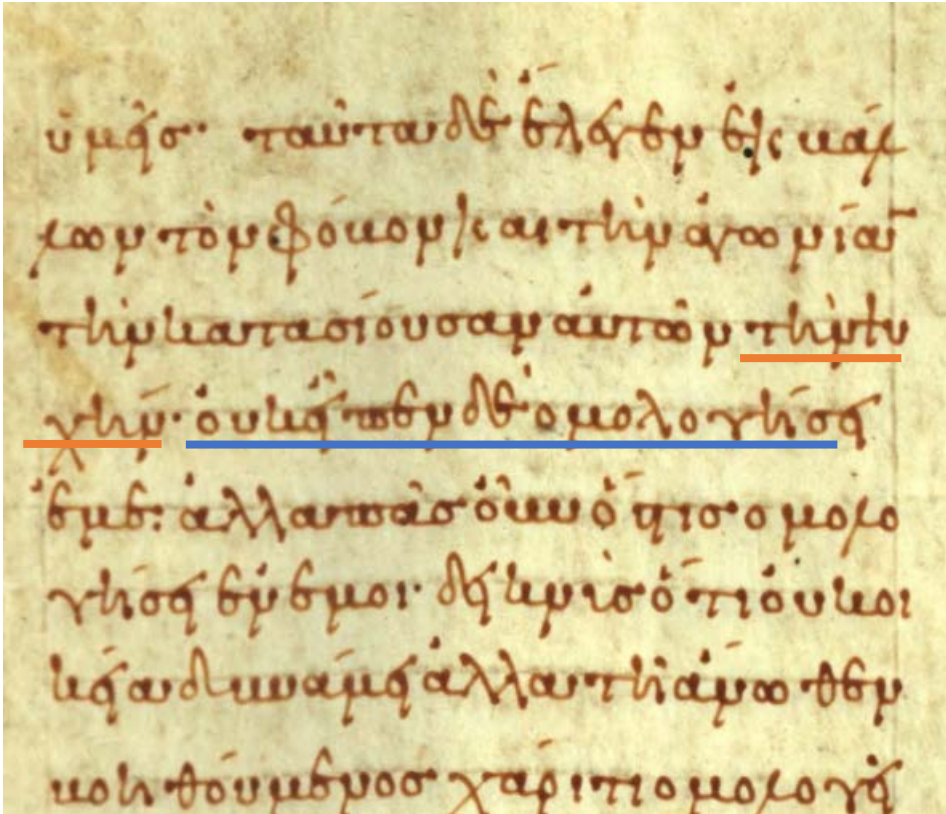 ὑμεῖς· ταῦτα δὲ ἔλεγεν ἐκβάλ
λων τὸν φόβον καὶ τὴν ἀγωνίαν
τὴν κατασίουσαν ἀυτῶν τὴν ψυ
χήν· ὀυκ εἶπεν δὲ ὁμολογήσει
ἐμέ· ἀλλα πᾶσ ὀῦν ὅστισ ὁμολο
γήσει ἐν ἐμοι· δεικνὺσ ὅτι ὀυκ οι
κεία δυνάμει ἀλλα τῆ ἄνωθεν
βοηθούμενοσ χάριτι ὁμολογεῖ